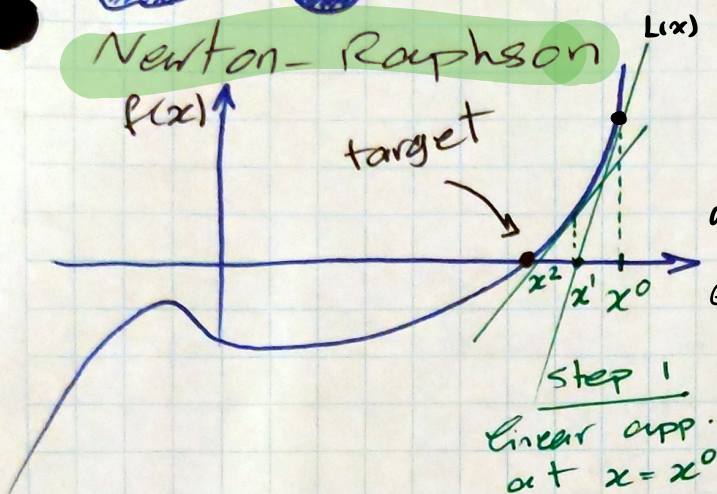 Newton-Raphson
L(x)
f(x)
target
x² x¹ x⁰
step 1
linear app.
at x = x⁰